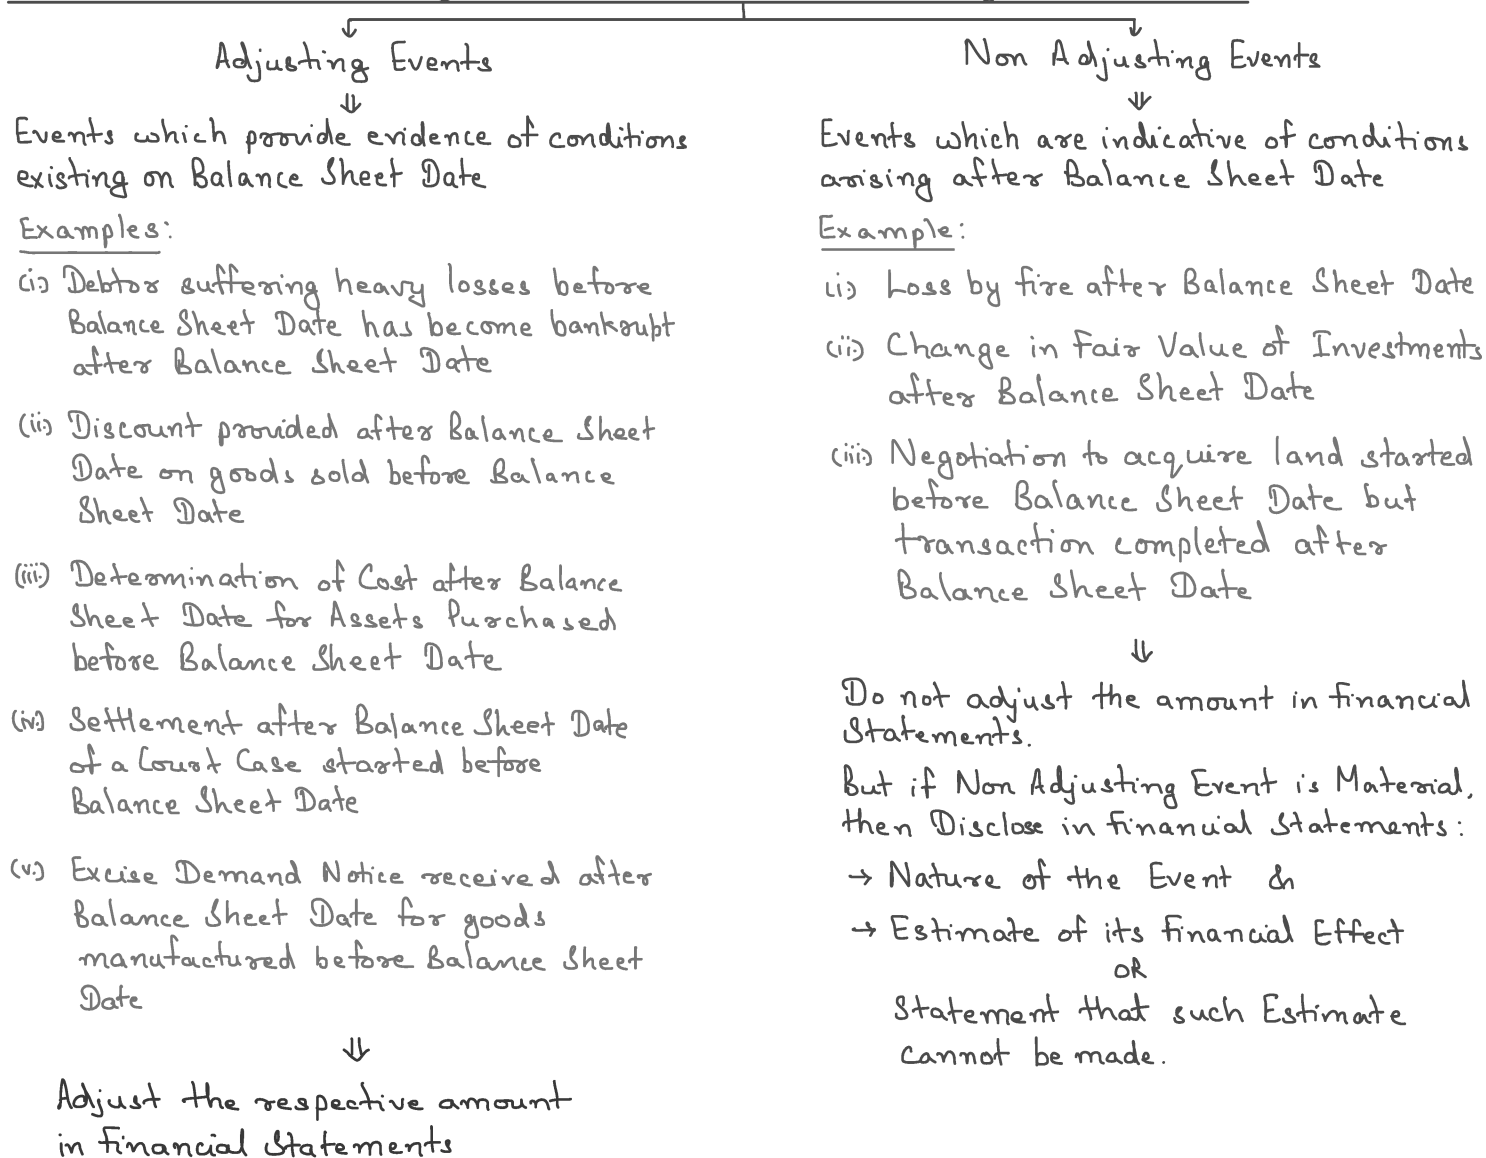 Adjusting Events
Events which provide evidence of conditions
existing on Balance Sheet Date
Examples:
(i) Debtor suffering heavy losses before
Balance Sheet Date has become bankrupt
after Balance Sheet Date
(ii) Discount provided after Balance Sheet
Date on goods sold before Balance
Sheet Date
(iii) Determination of Cost after Balance
Sheet Date for Assets Purchased
before Balance Sheet Date
(iv) Settlement after Balance Sheet Date
of a Court Case started before
Balance Sheet Date
(v) Excise Demand Notice received after
Balance Sheet Date for goods
manufactured before Balance Sheet
Date
Adjust the respective amount
in Financial Statements
Non Adjusting Events
Events which are indicative of conditions
arising after Balance Sheet Date
Example:
(i) Loss by fire after Balance Sheet Date
(ii) Change in Fair Value of Investments
after Balance Sheet Date
(iii) Negotiation to acquire land started
before Balance Sheet Date but
transaction completed after
Balance Sheet Date
Do not adjust the amount in Financial
Statements.
But if Non Adjusting Event is Material,
then Disclose in Financial Statements:
→ Nature of the Event &
→ Estimate of its Financial Effect
OR
Statement that such Estimate
cannot be made.